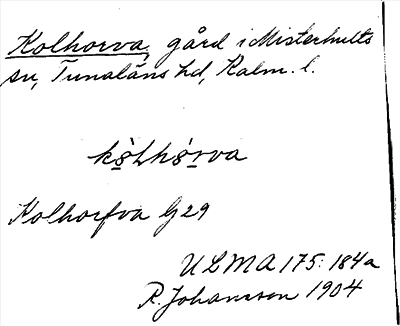 Kolhorva, gård i Misterhults
sn, Tunaläns hd, Kalm. l.
kòLhòrva
Kolhorfva G 29
ULMA 175: 184a
R. Johansson 1904